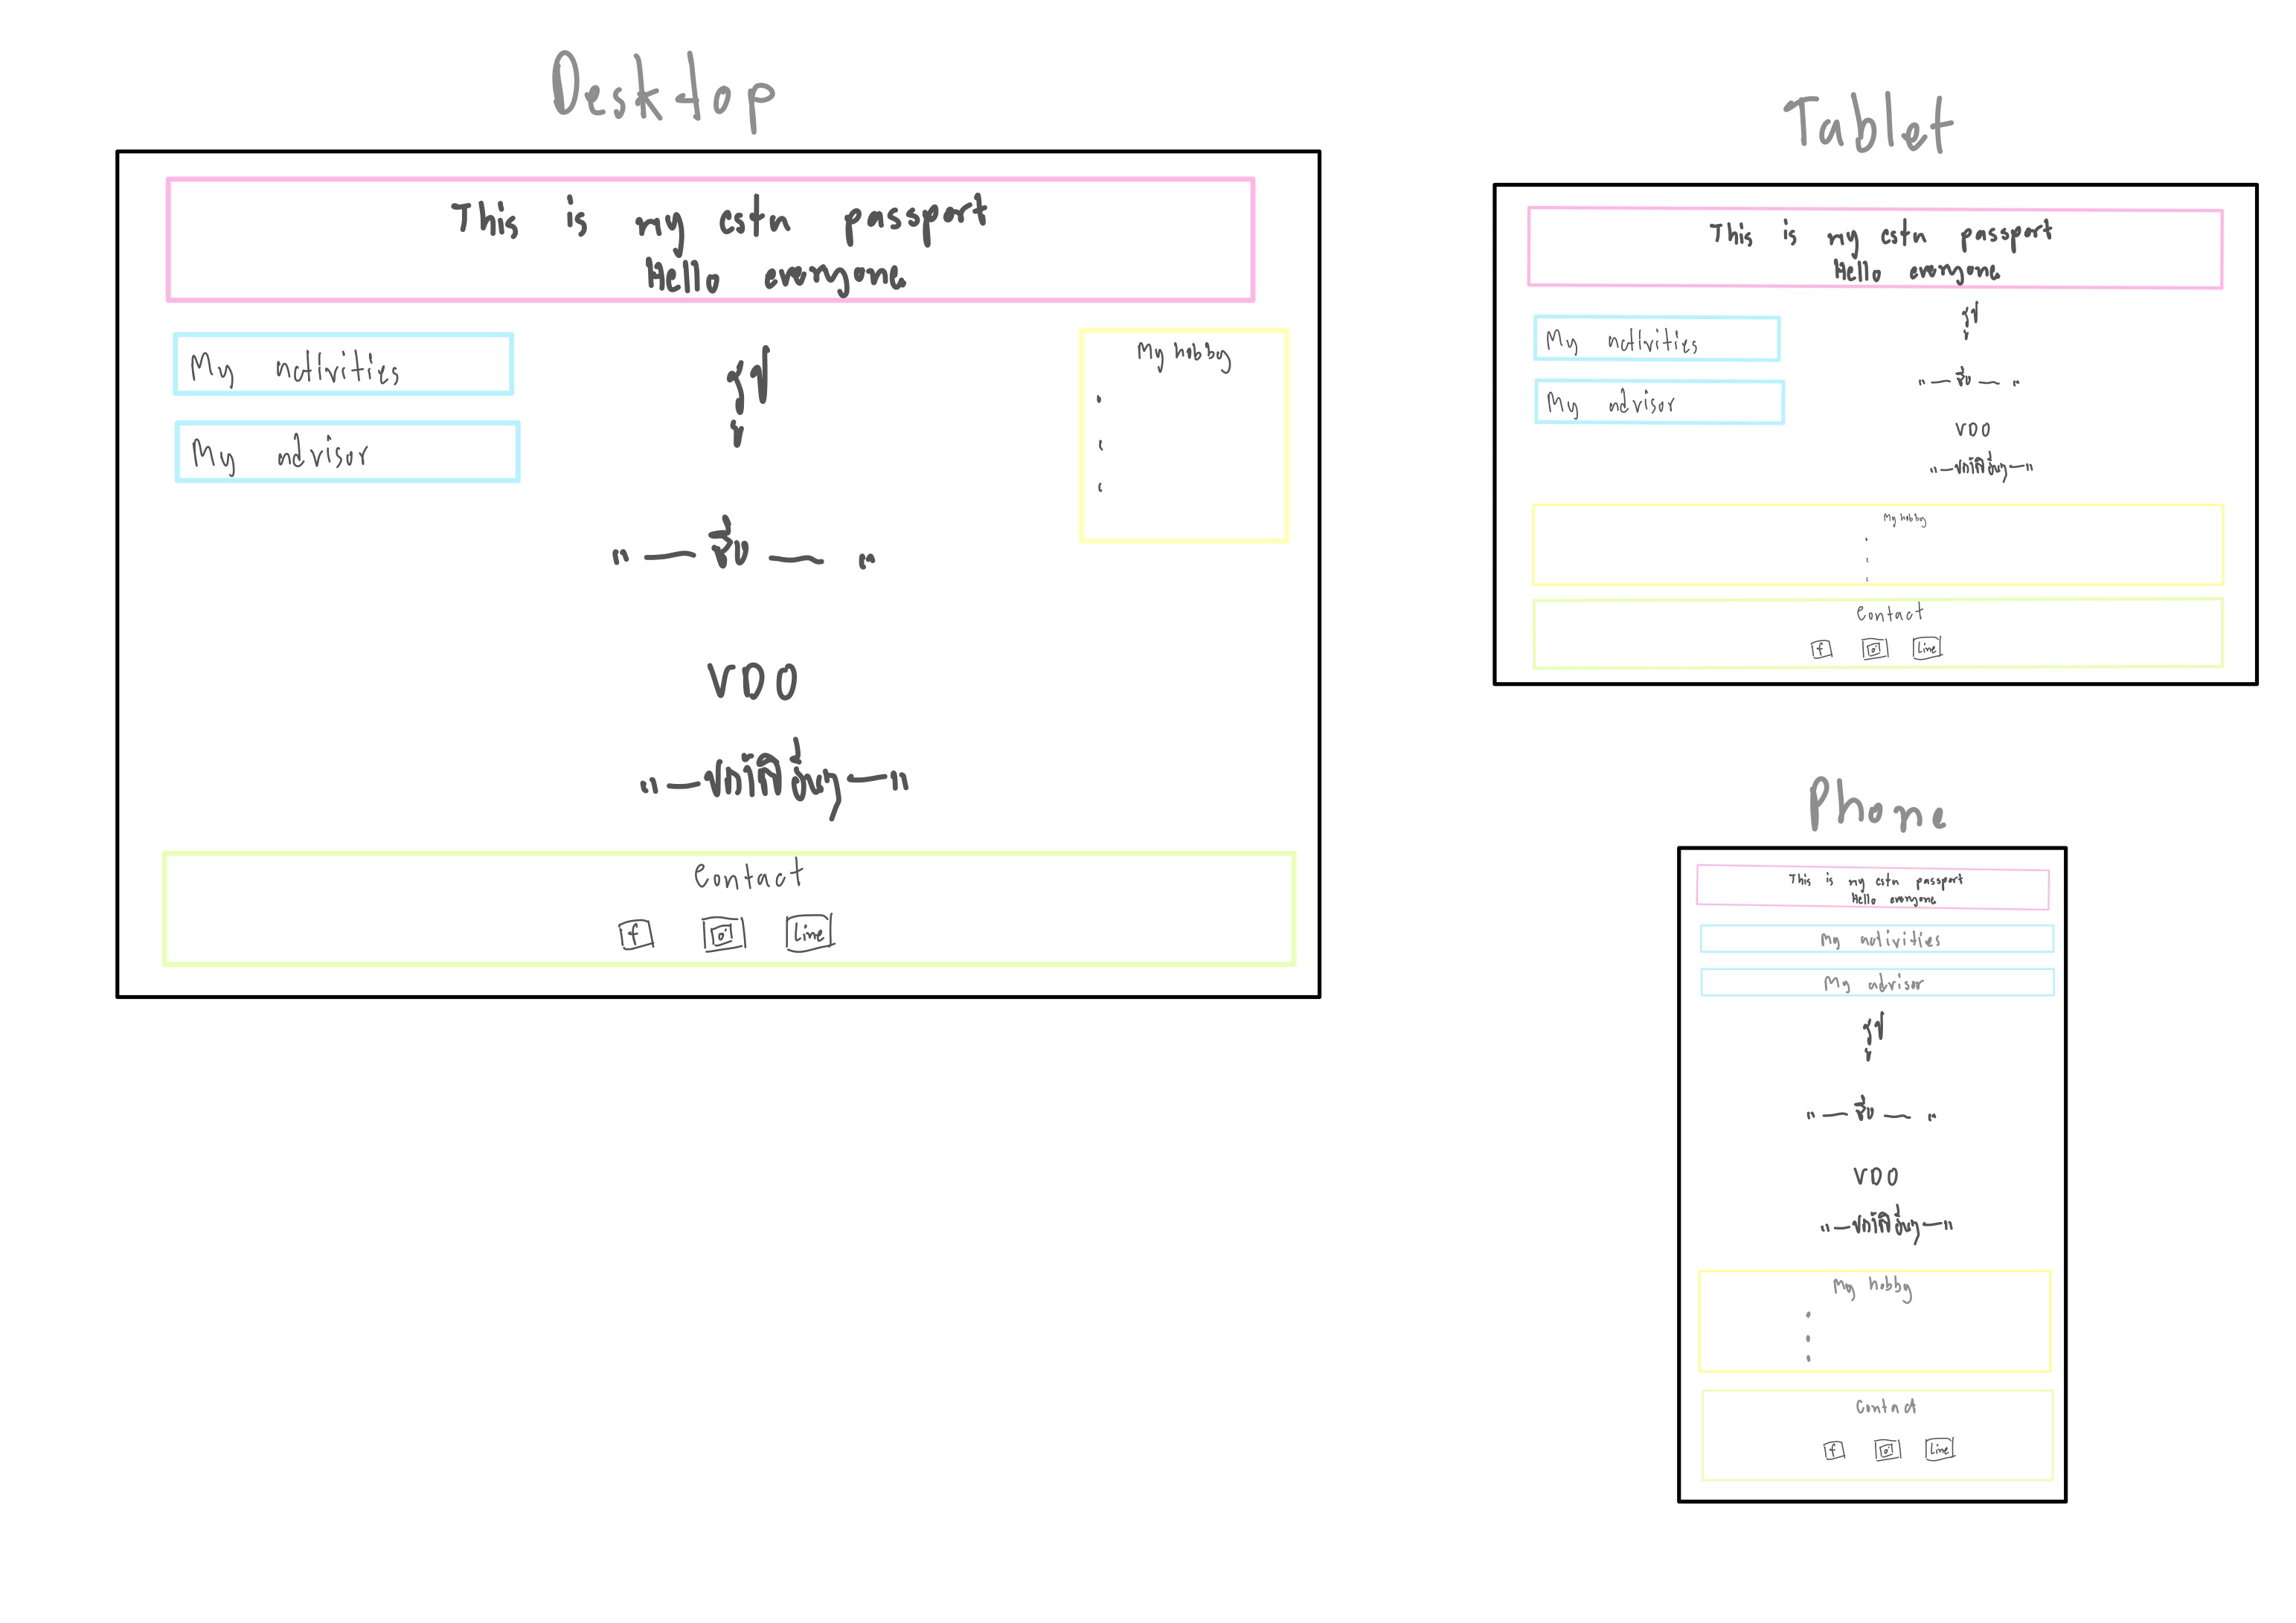 Desktop
This is my cstu passport
Hello everyone
My activities
My advisor
รูป
"— ชื่อ — "
VDO
My hobby
Contact
f
Line
Tablet
This is my cstu passport
Hello everyone
My activities
My advisor
รูป
"— ชื่อ — "
VDO
My hobby
Contact
f
Line
Phone
This is my cstu passport
Hello everyone
My activities
My advisor
รูป
"— ชื่อ — "
VDO
My hobby
Contact
f
Line